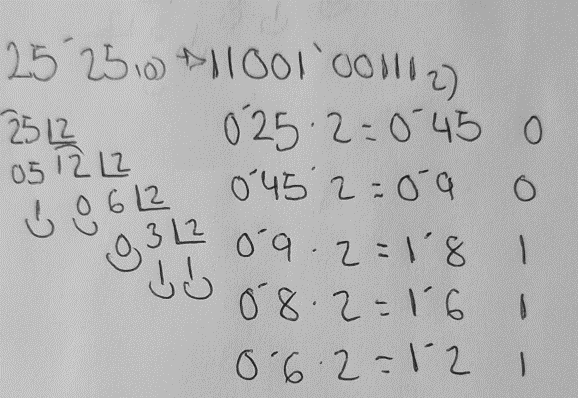 25'25₁₀) → 11001'00111₂)
25 |2
05 12 |2
1 0 6 |2
0 3 |2
1 1
0'25 · 2 = 0'45 0
0'45 · 2 = 0'9 0
0'9 · 2 = 1'8 1
0'8 · 2 = 1'6 1
0'6 · 2 = 1'2 1